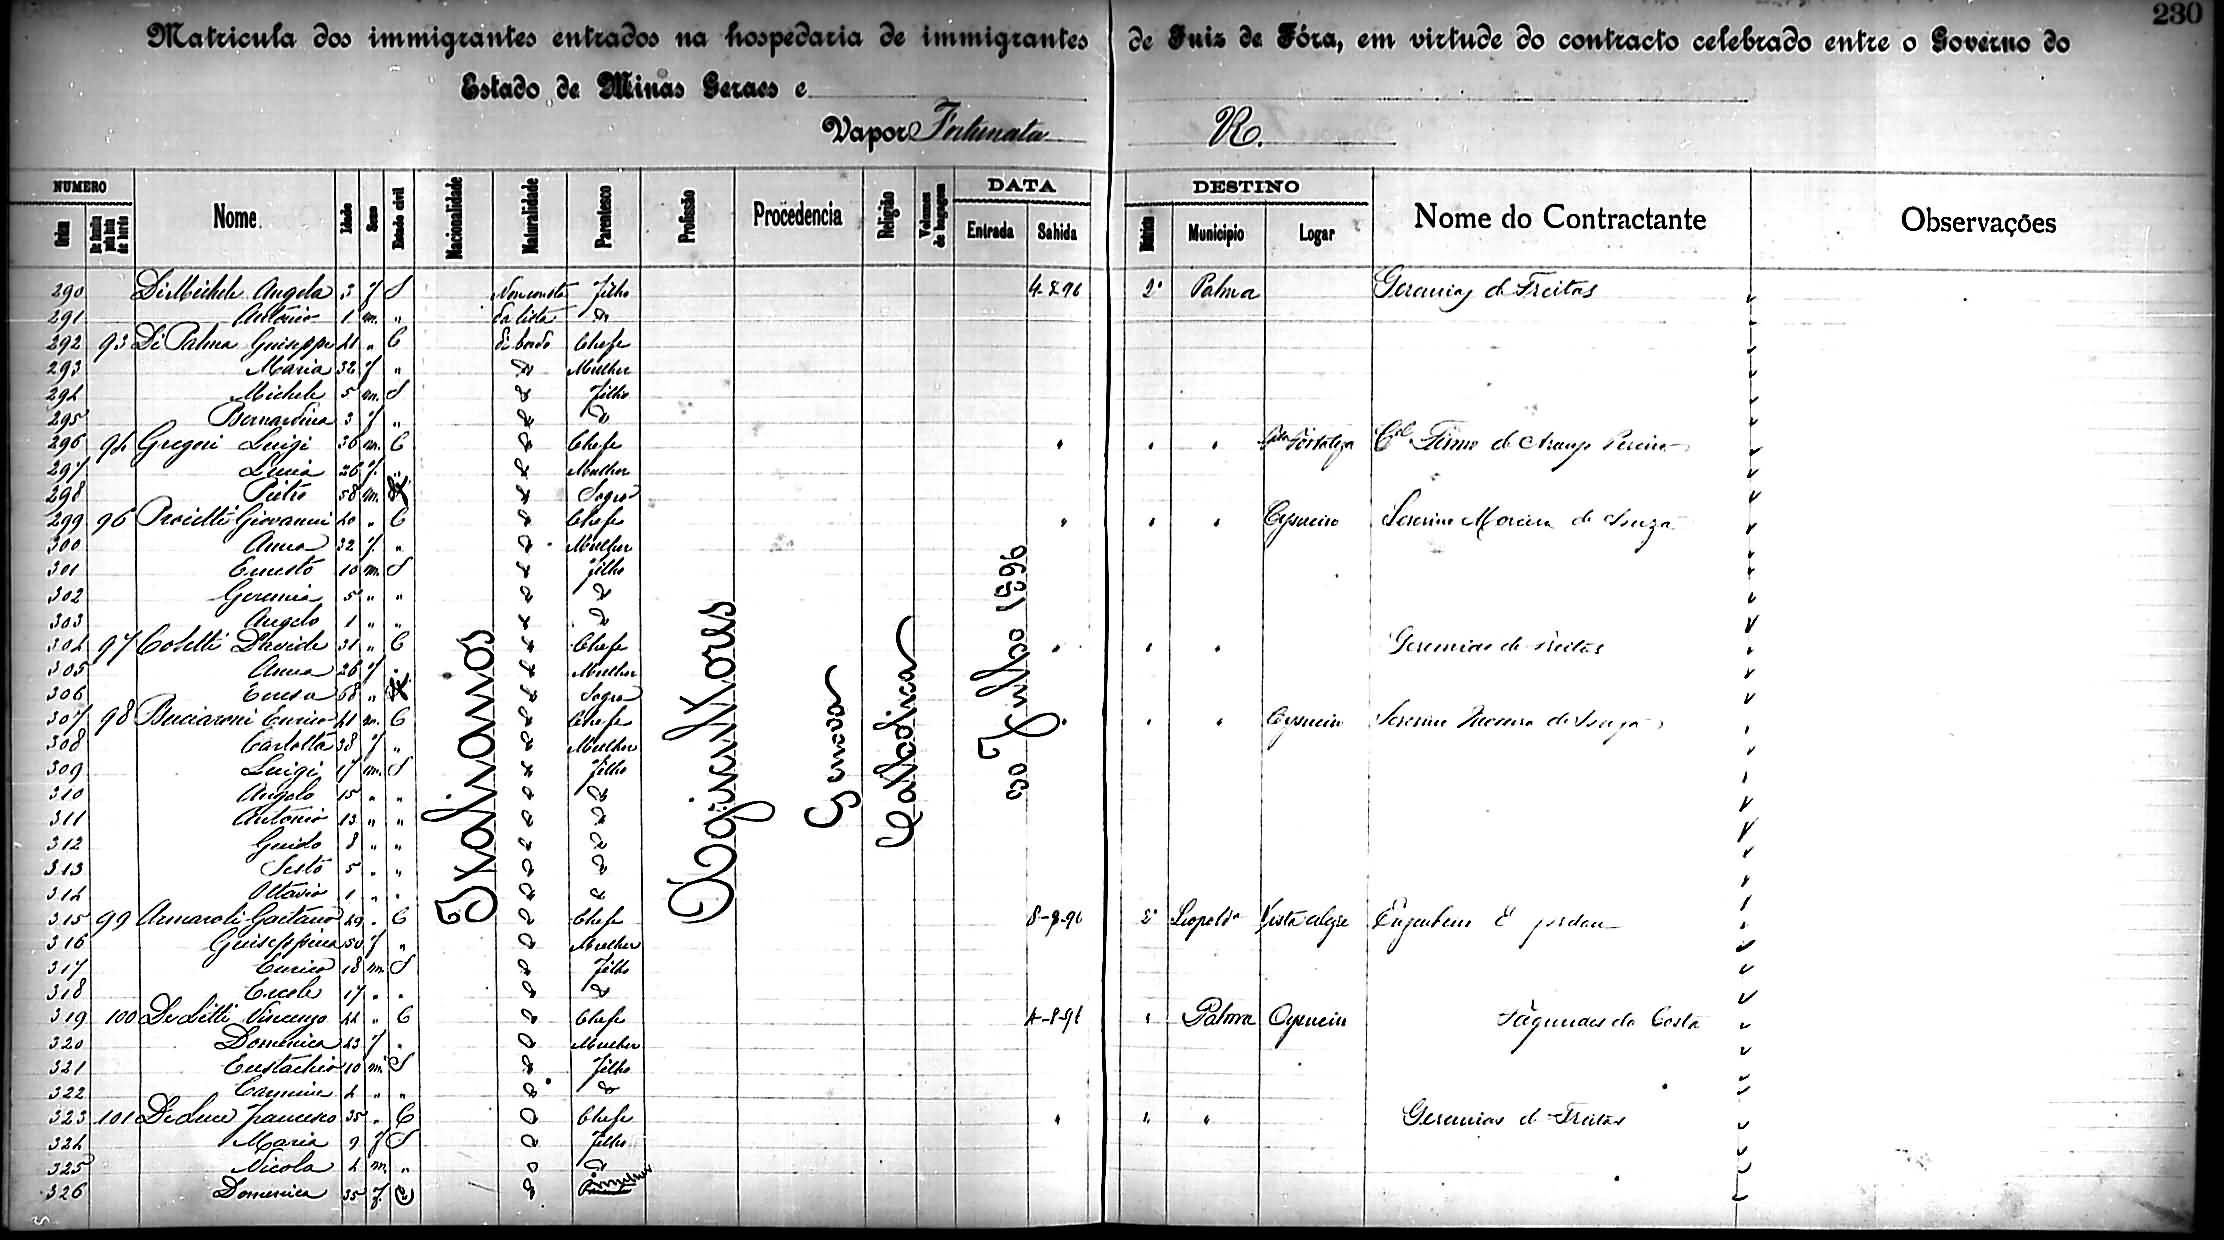 230
Matricula dos immigrantes entrados na hospedaria de immigrantes de Juiz de Fóra, em virtude do contracto celebrado entre o Governo do
Estado de Minas Geraes e
Vapor Fortunata R.
NUMERO DATA DESTINO
Ordem Nome Idade Sexo Estado civil Nacionalidade Naturalidade Parentesco Profissão Procedencia Religião Volumes de bagagem Entrada Sahida Districto Municipio Logar Nome do Contractante Observações
290 Di Michele Angela 3 f S Non consta filho 4-8-96 2º Palma Geremias de Freitas
291 Antonio 1 m. " da lista
292 93 Di Palma Giuseppe 41 " C de bordo Chefe
293 Maria 32 f " Mulher
294 Michele 5 m. S filho
295 Bernardina 3 f "
296 94 Gregori Luigi 36 m. C Chefe " " " Fortaleza Cel Firmo de Araujo Pereira
297 Lucia 26 f. " Mulher
298 Pietro 58 m. Sogro
299 96 Proietti Giovanni 40 " C Chefe " " " Cysneiro Severino Moreira de Souza
300 Anna 32 f. " Mulher
301 Ernesto 10 m. S filho
302 Geremia 5 " "
303 Angelo 1 " "
304 97 Coletti Davide 31 " C Chefe " " " Geremias de Freitas
305 Anna 26 f " Mulher
306 Teresa 68 " Sogra
307 98 Bucciaroni Enrico 41 m. C Chefe " " " Cysneiro Severino Moreira de Souza
308 Carlotta 38 f " Mulher
309 Luigi 17 m. S filho
310 Angelo 15 " "
311 Antonio 13 " "
312 Guido 8 " "
313 Sesto 5 " "
314 Ottavio 1 " "
315 99 Armaroli Gaetano 49 " C Chefe 8-8-96 2º Leopoldª Vista Alegre
316 Guiseppina 50 f " Mulher
317 Enrico 18 m S filho
318 Ercole 17 " "
319 100 De Litti Vincenzo 44 " C Chefe 4-8-96 " Palma Cysneiro Fagundes da Costa
320 Domenica 43 f " Mulher
321 Eustachio 10 m. S filho
322 Carmine 4 " "
323 101 De Luca Francesco 35 " C Chefe " " " Geremias de Freitas
324 Maria 9 f S filho
325 Nicola 4 m. "
326 Domenica 35 f. C
Italianos
Agricultores
Genova
Catholica
30 Julho 1896